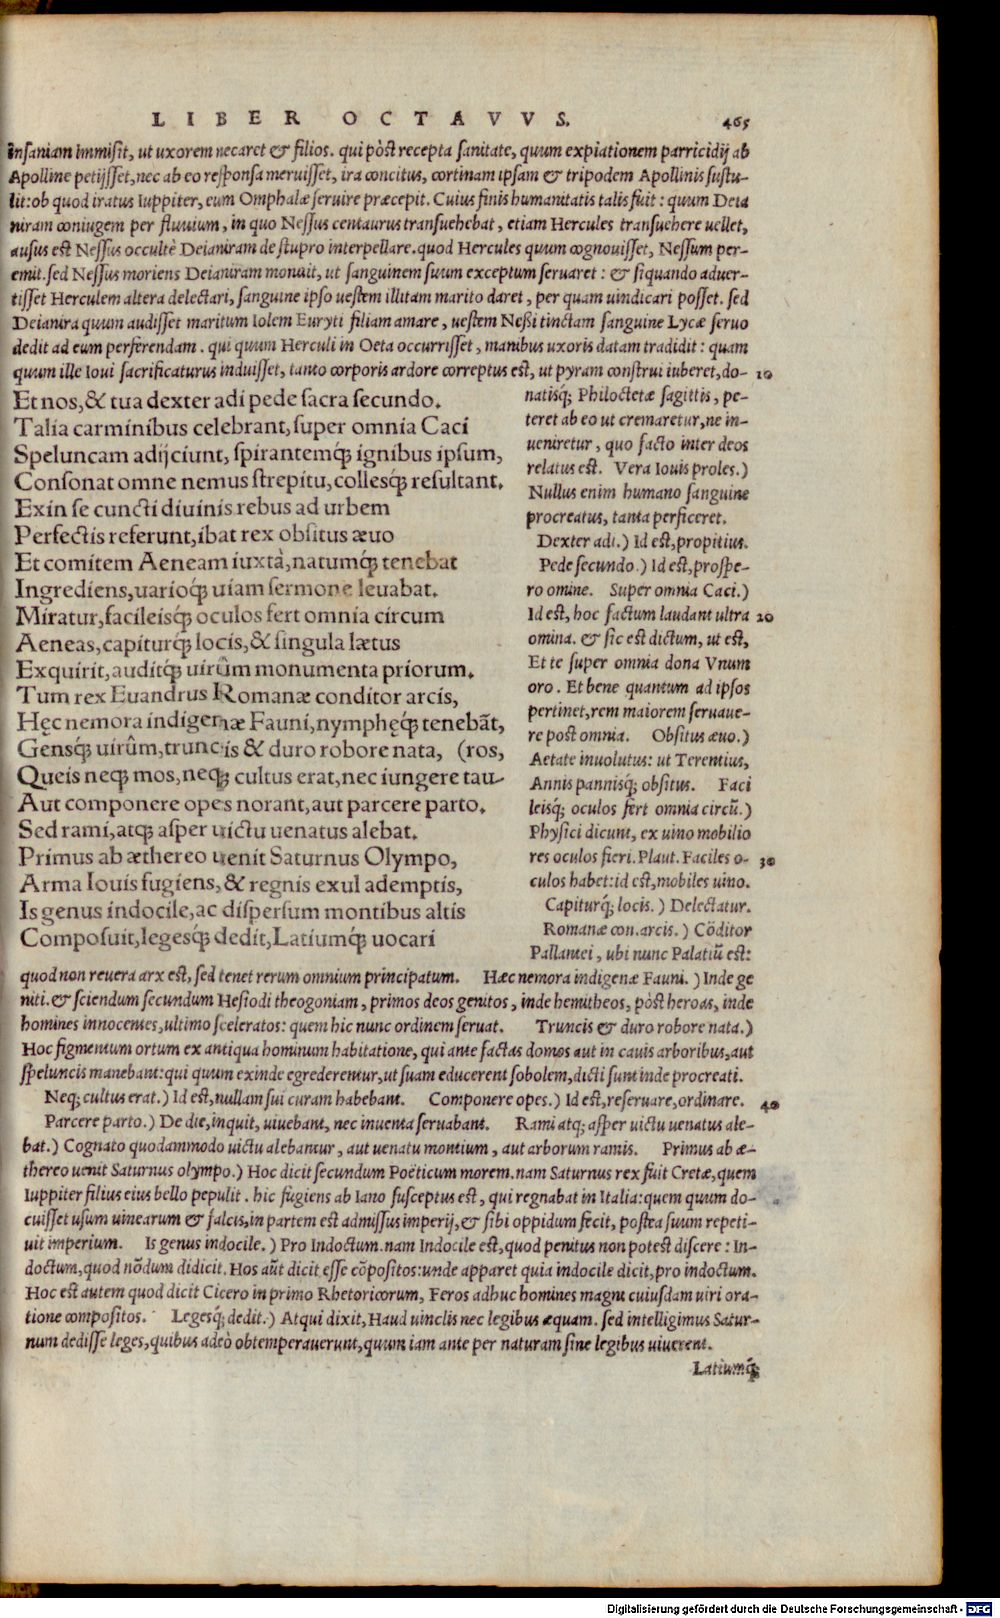 LIBER OCTAVVS. 465
insaniam immisit, ut uxorem necaret & filios. qui pòst recepta sanitate, quum expiationem parricidij ab
Apolline petijsset, nec ab eo responsa meruisset, ira concitus, cortinam ipsam & tripodem Apollinis sustu-
lit: ob quod iratus Iuppiter, eum Omphalæ seruire præcepit. Cuius finis humanitatis talis fuit: quum Deia
niram coniugem per fluuium, in quo Nessus centaurus transuehebat, etiam Hercules transuehere uellet,
ausus est Nessus occultè Deianiram de stupro interpellare. quod Hercules quum cognouisset, Nessum per-
emit. sed Nessus moriens Deianiram monuit, ut sanguinem suum exceptum seruaret: & siquando aduer-
tisset Herculem altera delectari, sanguine ipso uestem illitam marito daret, per quam uindicari posset. sed
Deianira quum audisset maritum Iolem Euryti filiam amare, uestem Neßi tinctam sanguine Lycæ seruo
dedit ad eum perferendam. qui quum Herculi in Oeta occurrisset, manibus uxoris datam tradidit: quam
quum ille Ioui sacrificaturus induisset, tanto corporis ardore correptus est, ut pyram construi iuberet, do- 10
Et nos, & tua dexter adi pede sacra secundo.
Talia carminibus celebrant, super omnia Caci
Speluncam adijciunt, spirantemq́; ignibus ipsum,
Consonat omne nemus strepitu, collesq́; resultant.
Exin se cuncti diuinis rebus ad urbem
Perfectis referunt, ibat rex obsitus æuo
Et comitem Aeneam iuxtà, natumq́; tenebat
Ingrediens, uarioq́; uiam sermone leuabat.
Miratur, facileisq́; oculos fert omnia circum
Aeneas, capiturq́; locis, & singula lætus
Exquirit, auditq́; uirûm monumenta priorum.
Tum rex Euandrus Romanæ conditor arcis,
Hęc nemora indigenæ Fauni, nymphęq́; tenebãt,
Gensq́; uirûm, truncis & duro robore nata, (ros,
Queis neq; mos, neq; cultus erat, nec iungere tau-
Aut componere opes norant, aut parcere parto.
Sed rami, atq; asper uictu uenatus alebat.
Primus ab æthereo uenit Saturnus Olympo,
Arma Iouis fugiens, & regnis exul ademptis,
Is genus indocile, ac dispersum montibus altis
Composuit, legesq́; dedit, Latiumq́; uocari
natisq́; Philoctetæ sagittis, pe-
teret ab eo ut cremaretur, ne in-
ueniretur, quo facto inter deos
relatus est. Vera Iouis proles.)
Nullus enim humano sanguine
procreatus, tanta perficeret.
Dexter adi.) Id est, propitius.
Pede secundo.) Id est, prospe-
ro omine. Super omnia Caci.)
Id est, hoc factum laudant ultra 20
omina. & sic est dictum, ut est,
Et te super omnia dona Vnum
oro. Et bene quantum ad ipsos
pertinet, rem maiorem seruaue-
re post omnia. Obsitus æuo.)
Aetate inuolutus: ut Terentius,
Annis pannisq́; obsitus. Faci
leisq́; oculos fert omnia circũ.)
Physici dicunt, ex uino mobilio
res oculos fieri. Plaut. Faciles o- 30
culos habet: id est, mobiles uino.
Capiturq́; locis.) Delectatur.
Romanæ con. arcis.) Cõditor
Pallantei, ubi nunc Palatiũ est:
quod non reuera arx est, sed tenet rerum omnium principatum. Hæc nemora indigenæ Fauni.) Inde ge
niti. & sciendum secundum Hesiodi theogoniam, primos deos genitos, inde hemitheos, pòst heroas, inde
homines innocentes, ultimo sceleratos: quem hic nunc ordinem seruat. Truncis & duro robore nata.)
Hoc figmentum ortum ex antiqua hominum habitatione, qui ante factas domos aut in cauis arboribus, aut
speluncis manebant: qui quum exinde egrederentur, ut suam educerent sobolem, dicti sunt inde procreati.
Neq; cultus erat.) Id est, nullam sui curam habebant. Componere opes.) Id est, reseruare, ordinare. 40
Parcere parto.) De die, inquit, uiuebant, nec inuenta seruabant. Rami atq; asper uictu uenatus ale-
bat.) Cognato quodammodo uictu alebantur, aut uenatu montium, aut arborum ramis. Primus ab æ-
thereo uenit Saturnus olympo.) Hoc dicit secundum Poëticum morem. nam Saturnus rex fuit Cretæ, quem
Iuppiter filius eius bello pepulit. hic fugiens ab Iano susceptus est, qui regnabat in Italia: quem quum do-
cuisset usum uinearum & falcis, in partem est admissus imperij, & sibi oppidum fecit, postea suum repeti-
uit imperium. Is genus indocile.) Pro Indoctum. nam Indocile est, quod penitus non potest discere: In-
doctum, quod nõdum didicit. Hos aũt dicit esse cõpositos: unde apparet quia indocile dicit, pro indoctum.
Hoc est autem quod dicit Cicero in primo Rhetoricorum, Feros adhuc homines magni cuiusdam uiri ora-
tione compositos. Legesq́; dedit.) Atqui dixit, Haud uinclis nec legibus æquam. sed intelligimus Satur-
num dedisse leges, quibus adeò obtemperauerunt, quum iam ante per naturam sine legibus uiuerent.
Latiumq́;
Digitalisierung gefördert durch die Deutsche Forschungsgemeinschaft - DFG